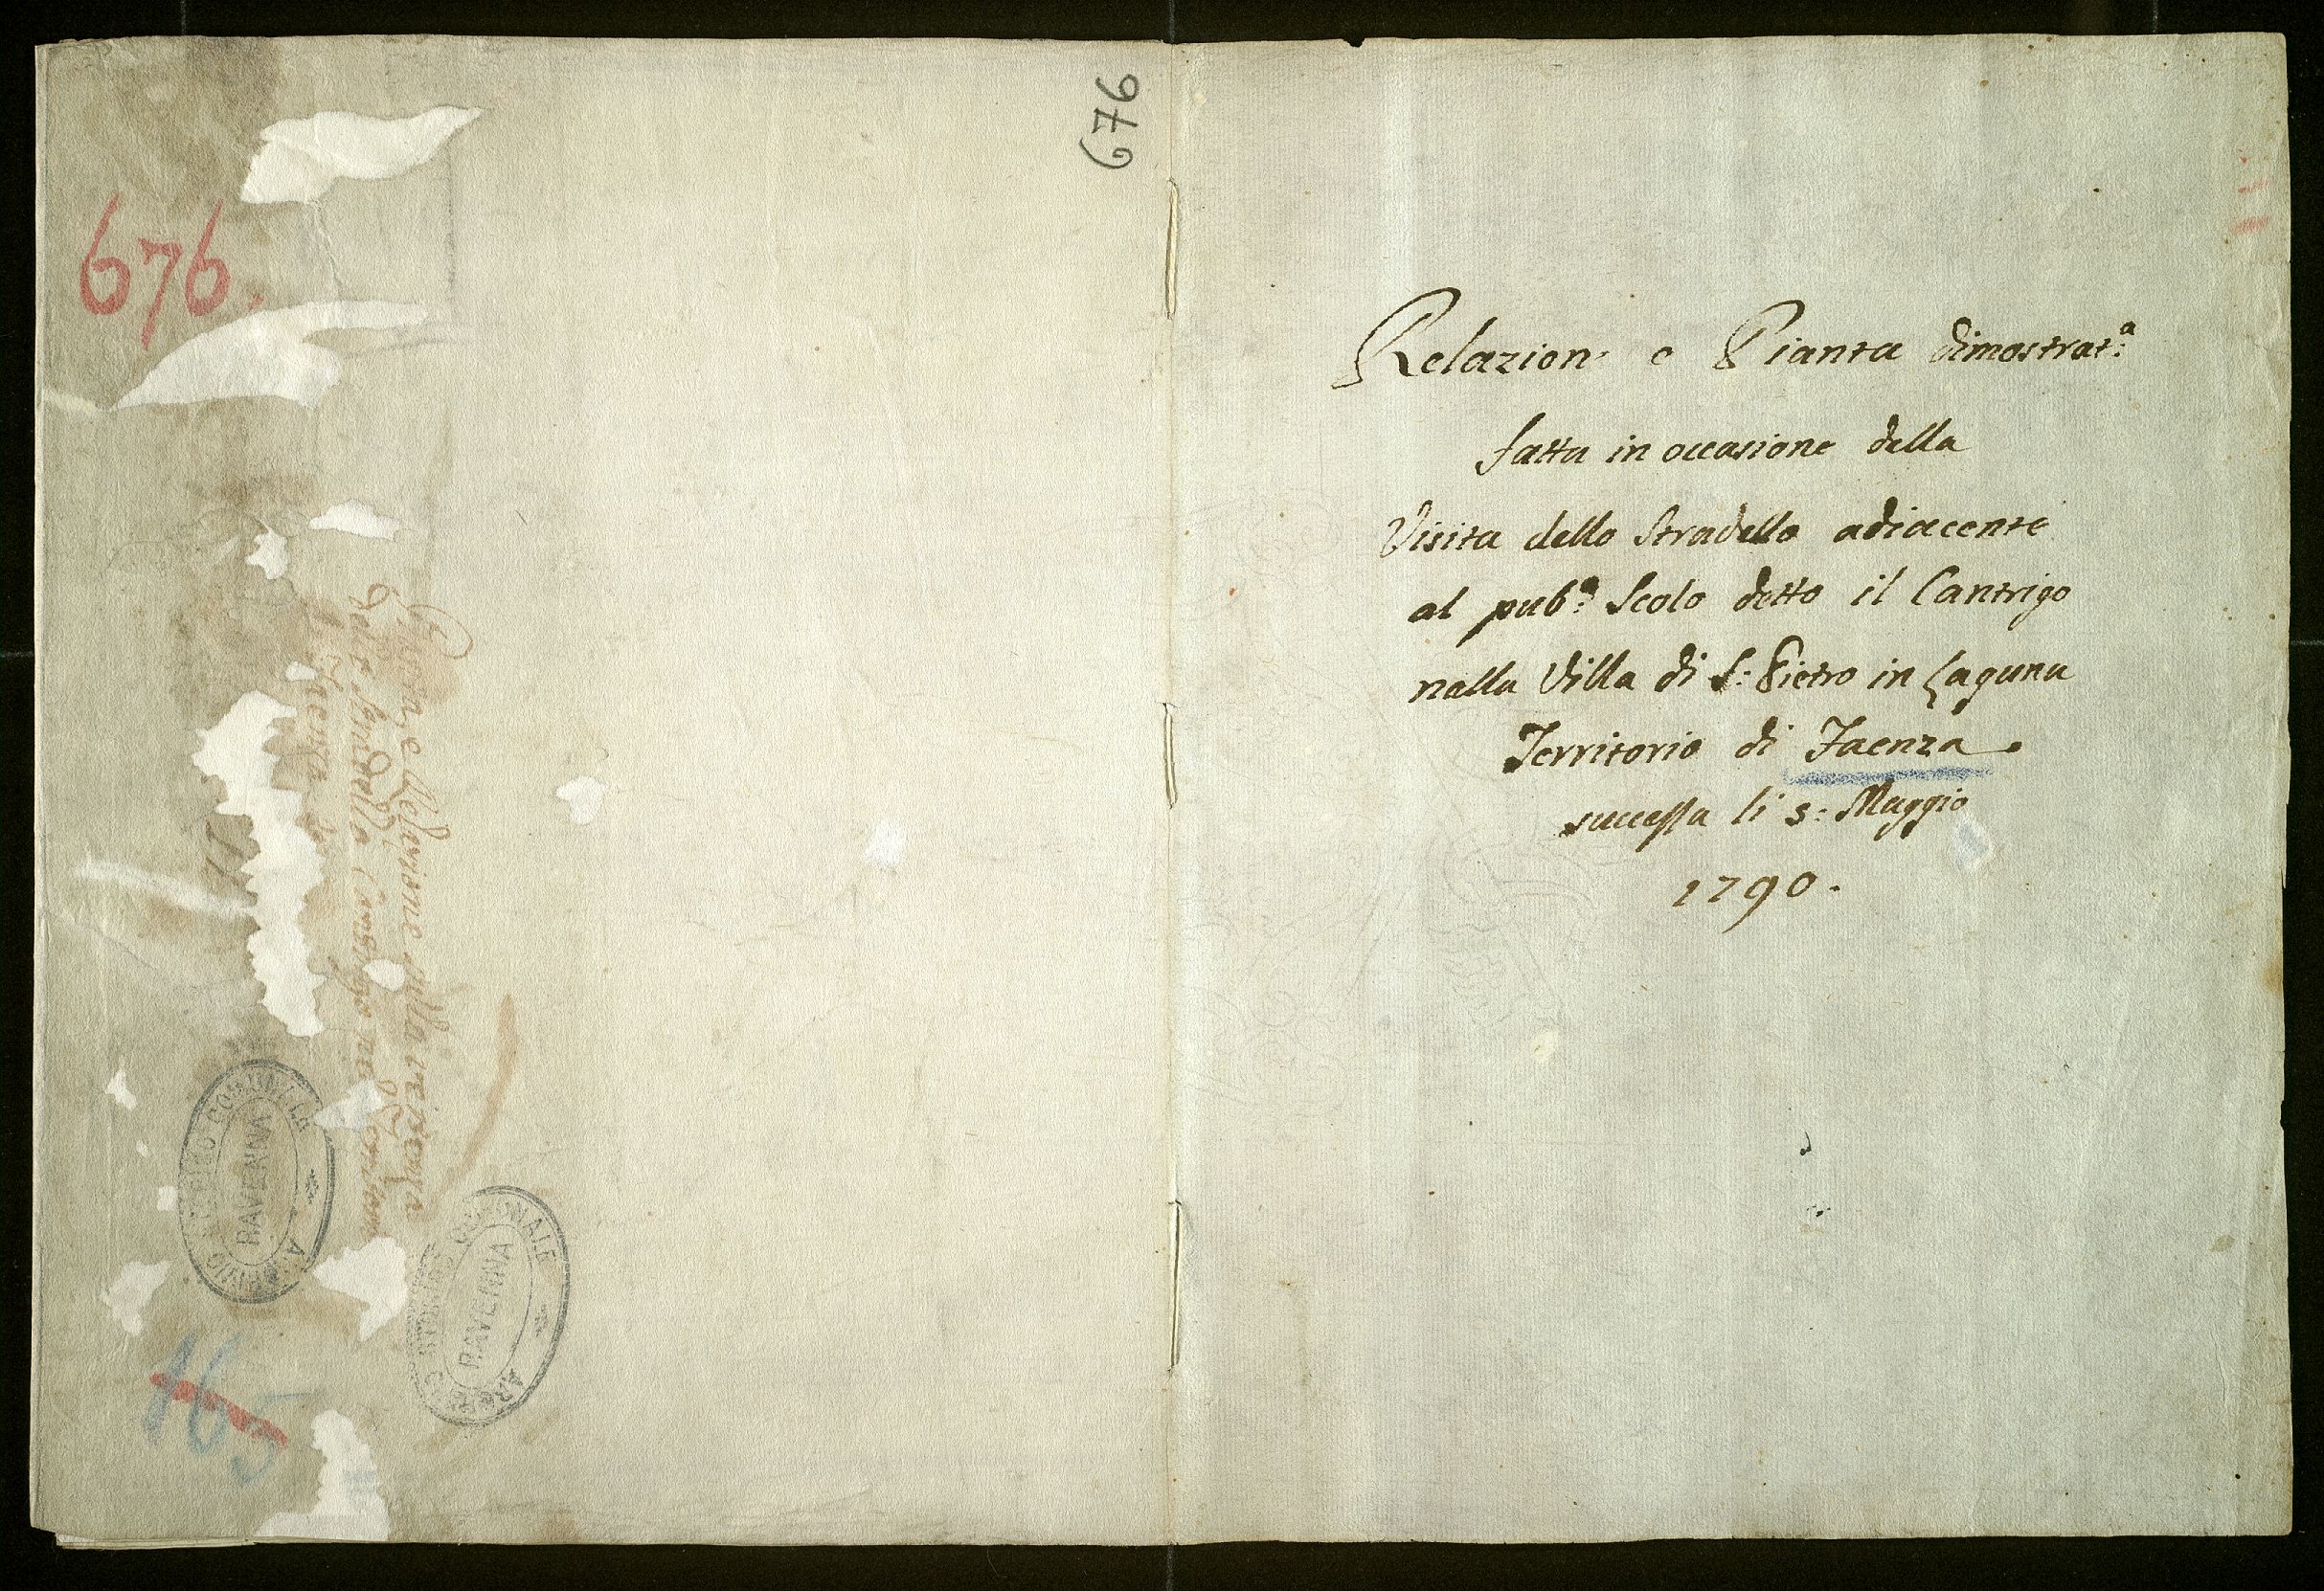 676
676.
Pianta, e Relazione sulla vertenza
dello Stradello Cantrigo nel Territorio
Faenza
ARCHIVIO STORICO COMUNALE
RAVENNA
ARCHIVIO STORICO COMUNALE
RAVENNA
165
Relazion e Pianta dimostrat:a
fatta in occasione della
Visita dello Stradello adiacente
al pub:o Scolo detto il Cantrigo
nella Villa di S: Pietro in Laguna
Territorio di Faenza.
successa li 3: Maggio
1790.